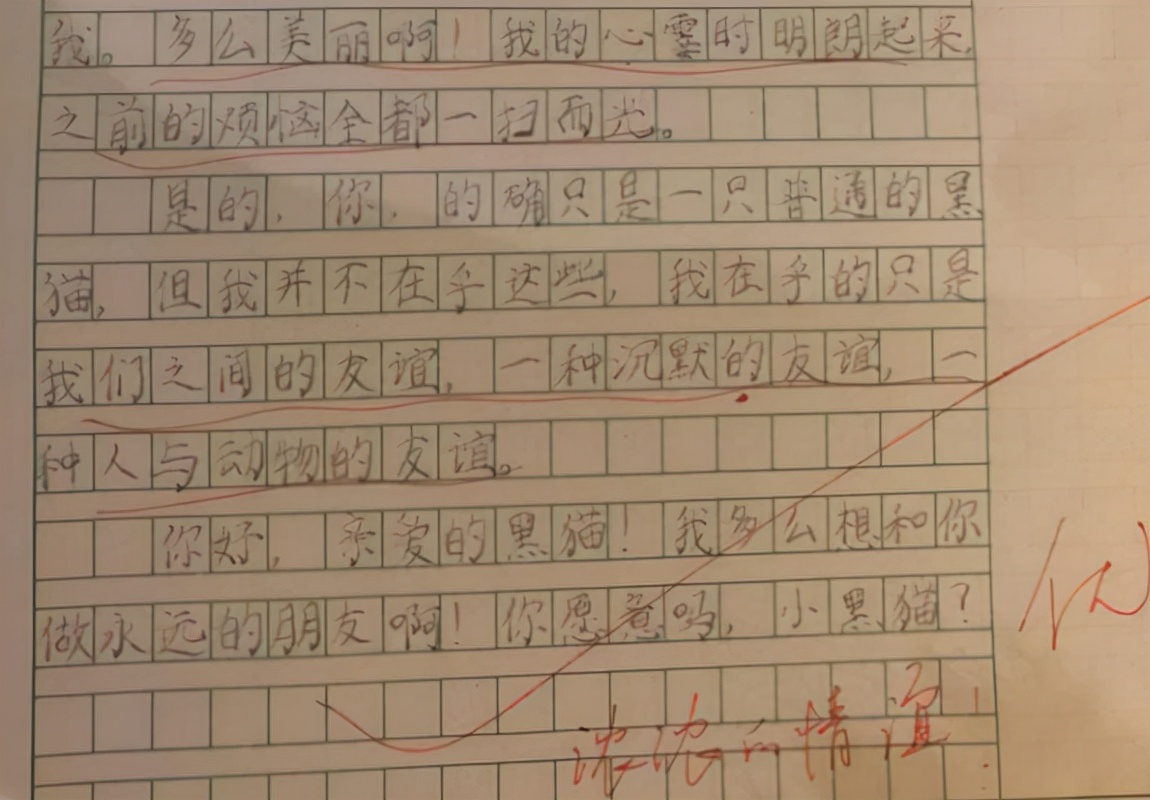 我。多么美丽啊！我的心霎时明朗起来,
之前的烦恼全都一扫而光。
是的，你，的确只是一只普通的黑
猫，但我并不在乎这些，我在乎的只是
我们之间的友谊，一种沉默的友谊，一
种人与动物的友谊。
你好，亲爱的黑猫！我多么想和你
做永远的朋友啊！你愿意吗，小黑猫？
优
浓浓的情谊！